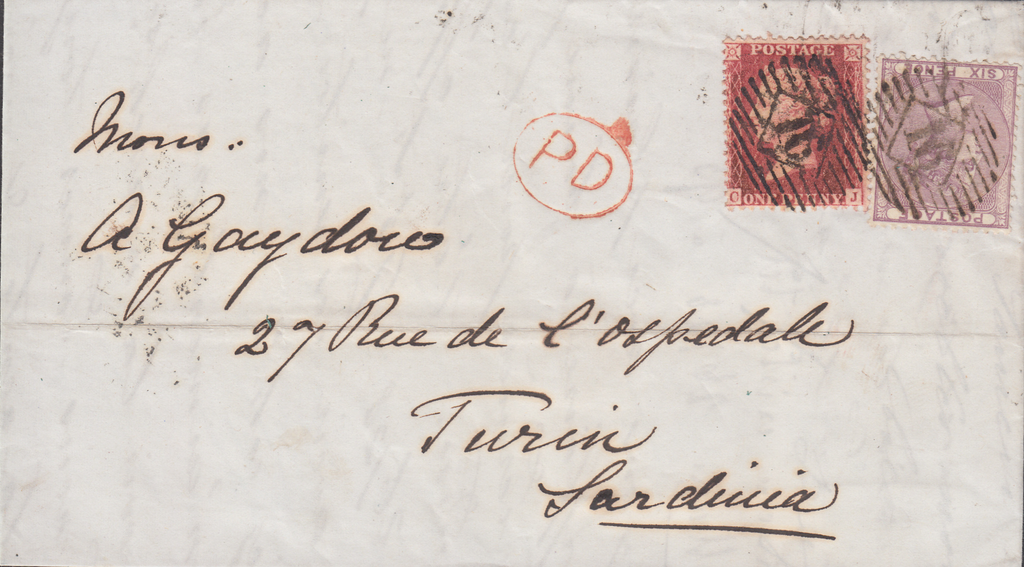 POSTAGE
C ONE PENNY J
SIX PENCE
POSTAGE
PD
Mons..
A Gaydou
27 Rue de l'ospedale
Turin
Sardinia